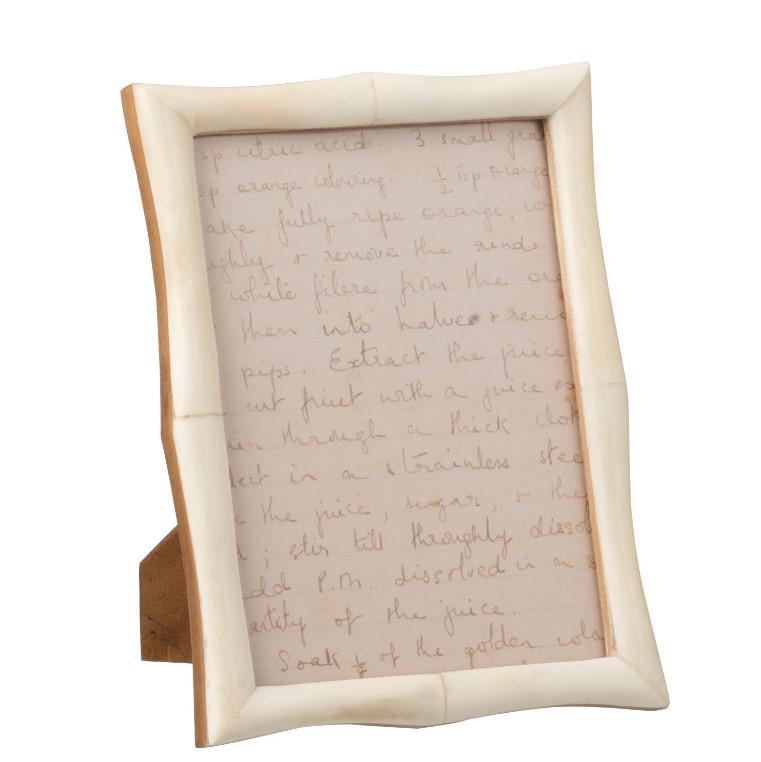 sp citric acid. 3 small gra
sp orange colouring. ½ tsp orange
ake fully ripe orange, w
ughly & remove the rinds.
white fibre from the ora
then into halves & remo
pips. Extract the juice
cut fruit with a juice
ain through a thick clot
lect in a strainless stee
the juice, sugar, & the
; stir till throughly dissol
dd P.M. dissolved in a s
antity of the juice.
Soak ½ of the golden colo